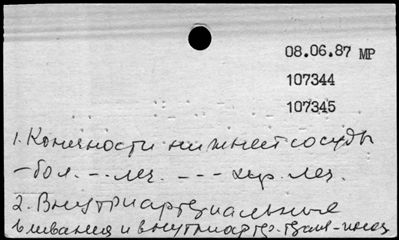 08.06.87 МР
107344
107345
1. Конечности нижней сосуды
- бол. - - леч. - - - хир. леч.
2. Внутриартериальные
вливания и внутриартер.